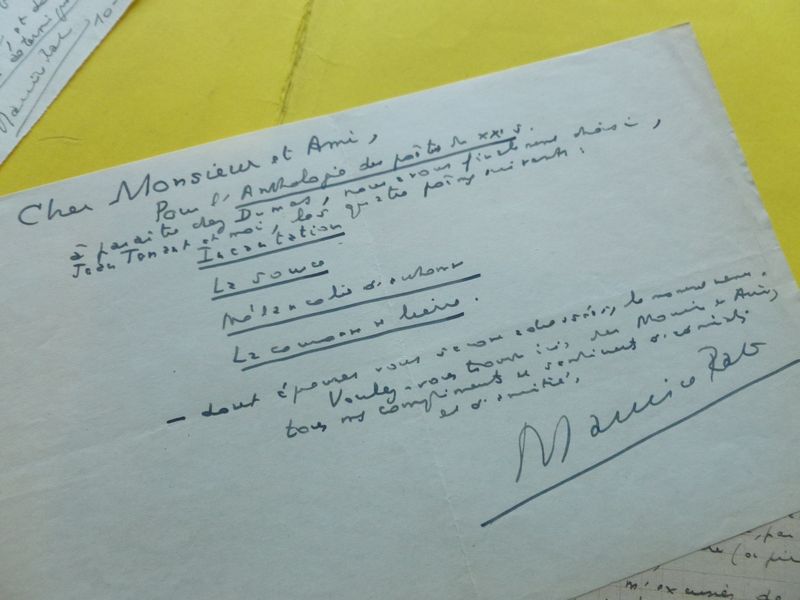 Cher Monsieur et Ami,
Pour l'Anthologie des poètes du XXe s.
à paraître chez Dumas, nous avons finalement choisi,
Jean Tenant et moi, les quatre poèmes suivants :
Incantation
La source
Mélancolie d'automne
La couronne de lierre.
– dont épreuves vous seront adressées, le moment venu.
Voulez-vous trouver ici, cher Monsieur et Ami,
tous mes compliments et sentiments
et d'amitié.
Maurice Rat
Maurice Rat
10-
m'excuser de